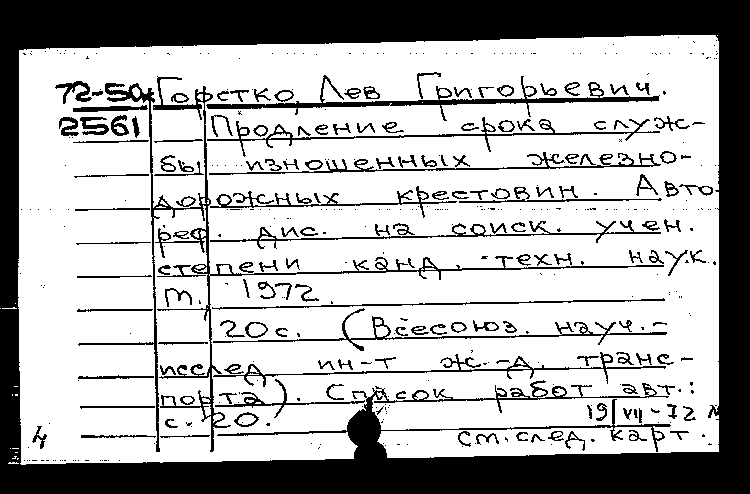 72-50к Горстко, Лев Григорьевич.
2561 Продление срока служ-
бы изношенных железно-
дорожных крестовин. Авто-
реф. дис. на соиск. учен.
степени канд. техн. наук.
М., 1972.
20 с. (Всесоюз. науч.-
исслед. ин-т ж.-д. транс-
порта). Список работ авт.:
с. 20.
19/VII-72
4 см. след. карт.